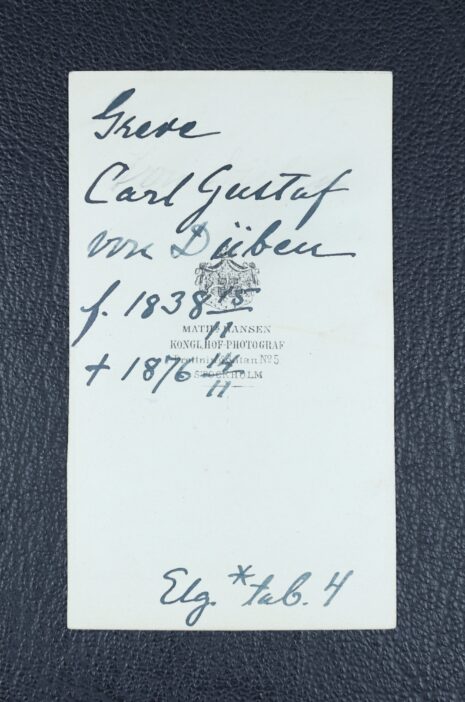 Greve
Carl Gustaf
von Düben
f. 1838 15/11
MATHS HANSEN
KONGL. HOF-PHOTOGRAF
Drottninggatan No 5
STOCKHOLM
† 1876 4/11
Elg. * tab. 4